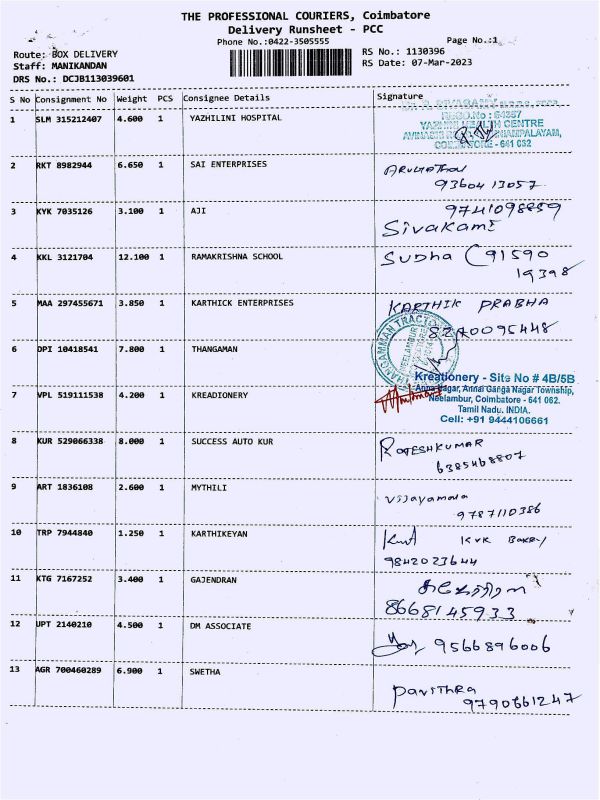 THE PROFESSIONAL COURIERS, Coimbatore
Delivery Runsheet - PCC
Phone No.:0422-3505555
Page No.:1
Route: BOX DELIVERY
RS No.: 1130396
Staff: MANIKANDAN
RS Date: 07-Mar-2023
DRS No.: DCJB113039601
S No Consignment No Weight PCS Consignee Details Signature
1 SLM 315212407 4.600 1 YAZHILINI HOSPITAL
HEALTH CENTRE
COIMBATORE - 641 032
2 RKT 8982944 6.650 1 SAI ENTERPRISES
9360413057
3 KYK 7035126 3.100 1 AJI 9741098859
Sivakami
4 KKL 3121704 12.100 1 RAMAKRISHNA SCHOOL Sudha (91590
19398
5 MAA 297455671 3.850 1 KARTHICK ENTERPRISES KARTHIK PRABHA
8270095448
6 DPI 10418541 7.800 1 THANGAMAN
THANGAMMAN TRACTOR
Kreationery - Site No # 4B/5B
Anna Nagar, Annai Ganga Nagar Township,
7 VPL 519111538 4.200 1 KREADIONERY
Neelambur, Coimbatore - 641 062.
Tamil Nadu. INDIA.
Cell: +91 9444106661
8 KUR 529066338 8.000 1 SUCCESS AUTO KUR
6385468807
9 ART 1836108 2.600 1 MYTHILI Vijayamala
9787110386
10 TRP 7944840 1.250 1 KARTHIKEYAN KVK Bakery
9842023644
11 KTG 7167252 3.400 1 GAJENDRAN
8668145933
12 UPT 2140210 4.500 1 DM ASSOCIATE 9566896006
13 AGR 700460289 6.900 1 SWETHA Pavithra
9790661247